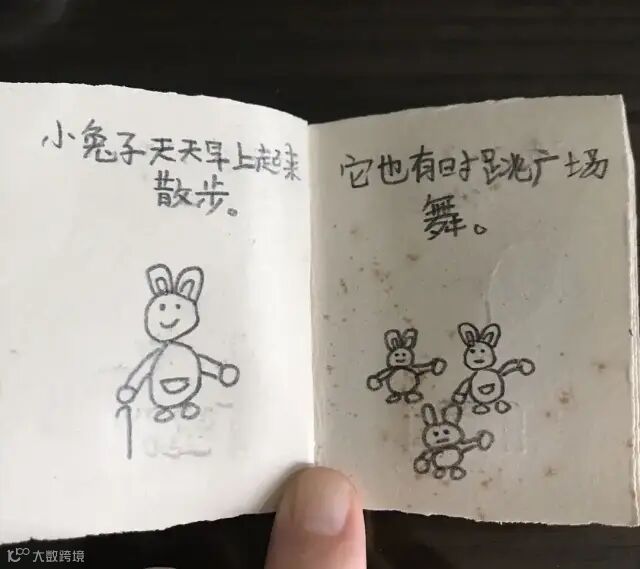 小兔子天天早上起来
散步。
它也有时跳广场
舞。
大数跨境